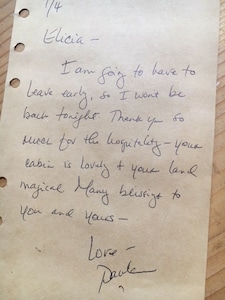 1/4
Elicia –
I am going to have to
leave early, so I wont be
back tonight Thank you so
much for the hospitality – your
cabin is lovely & your land
magical Many blessings to
you and yours –
Love –